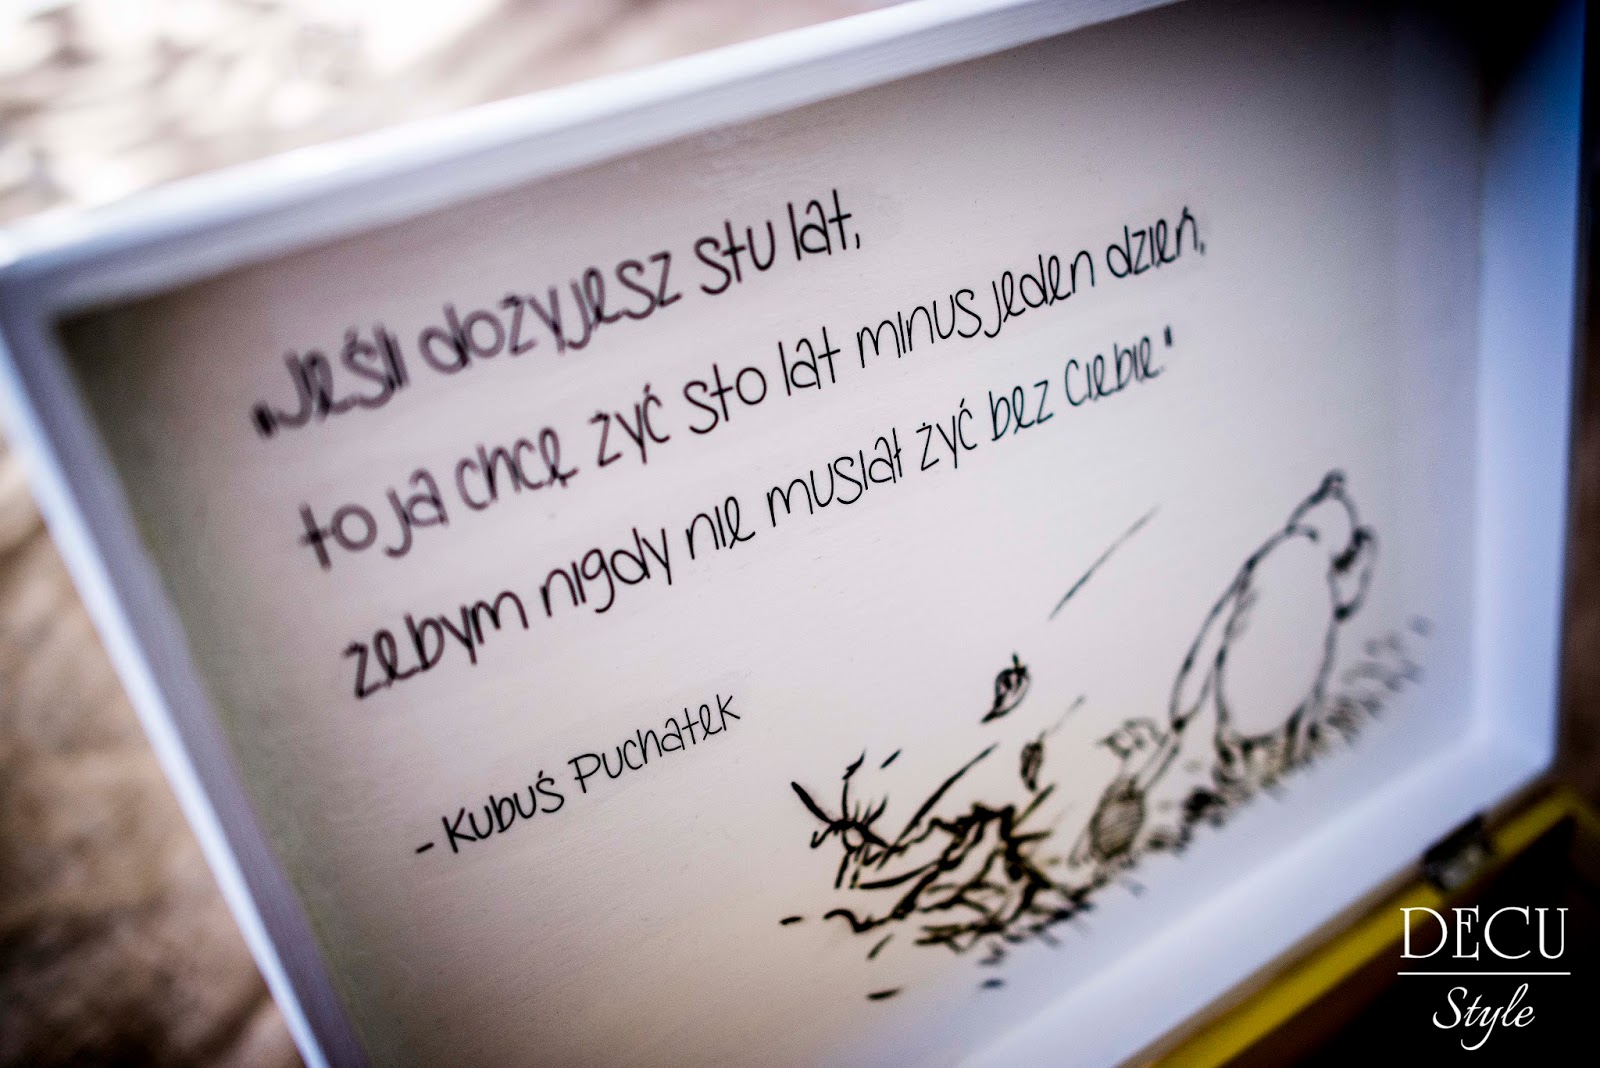 „Jeśli dożyjesz stu lat,
to ja chcę żyć sto lat minus jeden dzień,
żebym nigdy nie musiał żyć bez Ciebie."
- Kubuś Puchatek
DECU
Style